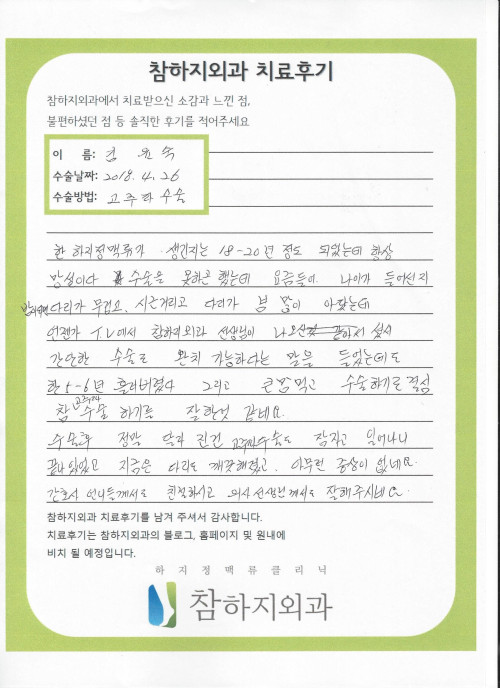 참하지외과 치료후기
참하지외과에서 치료받으신 소감과 느낀 점,
불편하셨던 점 등 솔직한 후기를 적어주세요
이 름: 김 윤 숙
수술날짜: 2018. 4. 26
수술방법: 고주파 수술
한 하지정맥류가 생긴지는 18-20년 정도 되었는데 항상
망설이다 수술을 못하곤 했는데 요즘들어 나이가 들어선지
다리가 무겁고, 시근거리고 다리가 많이 아팠는데
언젠가 T.V에서 참하지외과 선생님이 나오셔서
간단한 수술로 완치 가능하다는 말을 들었는데도
한 5-6년 흘러버렸다 그리고 큰맘먹고 수술하기로 결심
참 고주파 수술 하기를 잘한것 같네요.
수술후 정말 달라 진건 고주파수술도 잠자고 일어나니
끝나 있었고 지금은 다리도 깨끗해졌고, 아무런 증상이 없네요.
간호사 언니들께서도 친절하시고 의사 선생님께서도 잘해주시네요.
참하지외과 치료후기를 남겨 주셔서 감사합니다.
치료후기는 참하지외과의 블로그, 홈페이지 및 원내에
비치 될 예정입니다.
하지정맥류클리닉
참하지외과